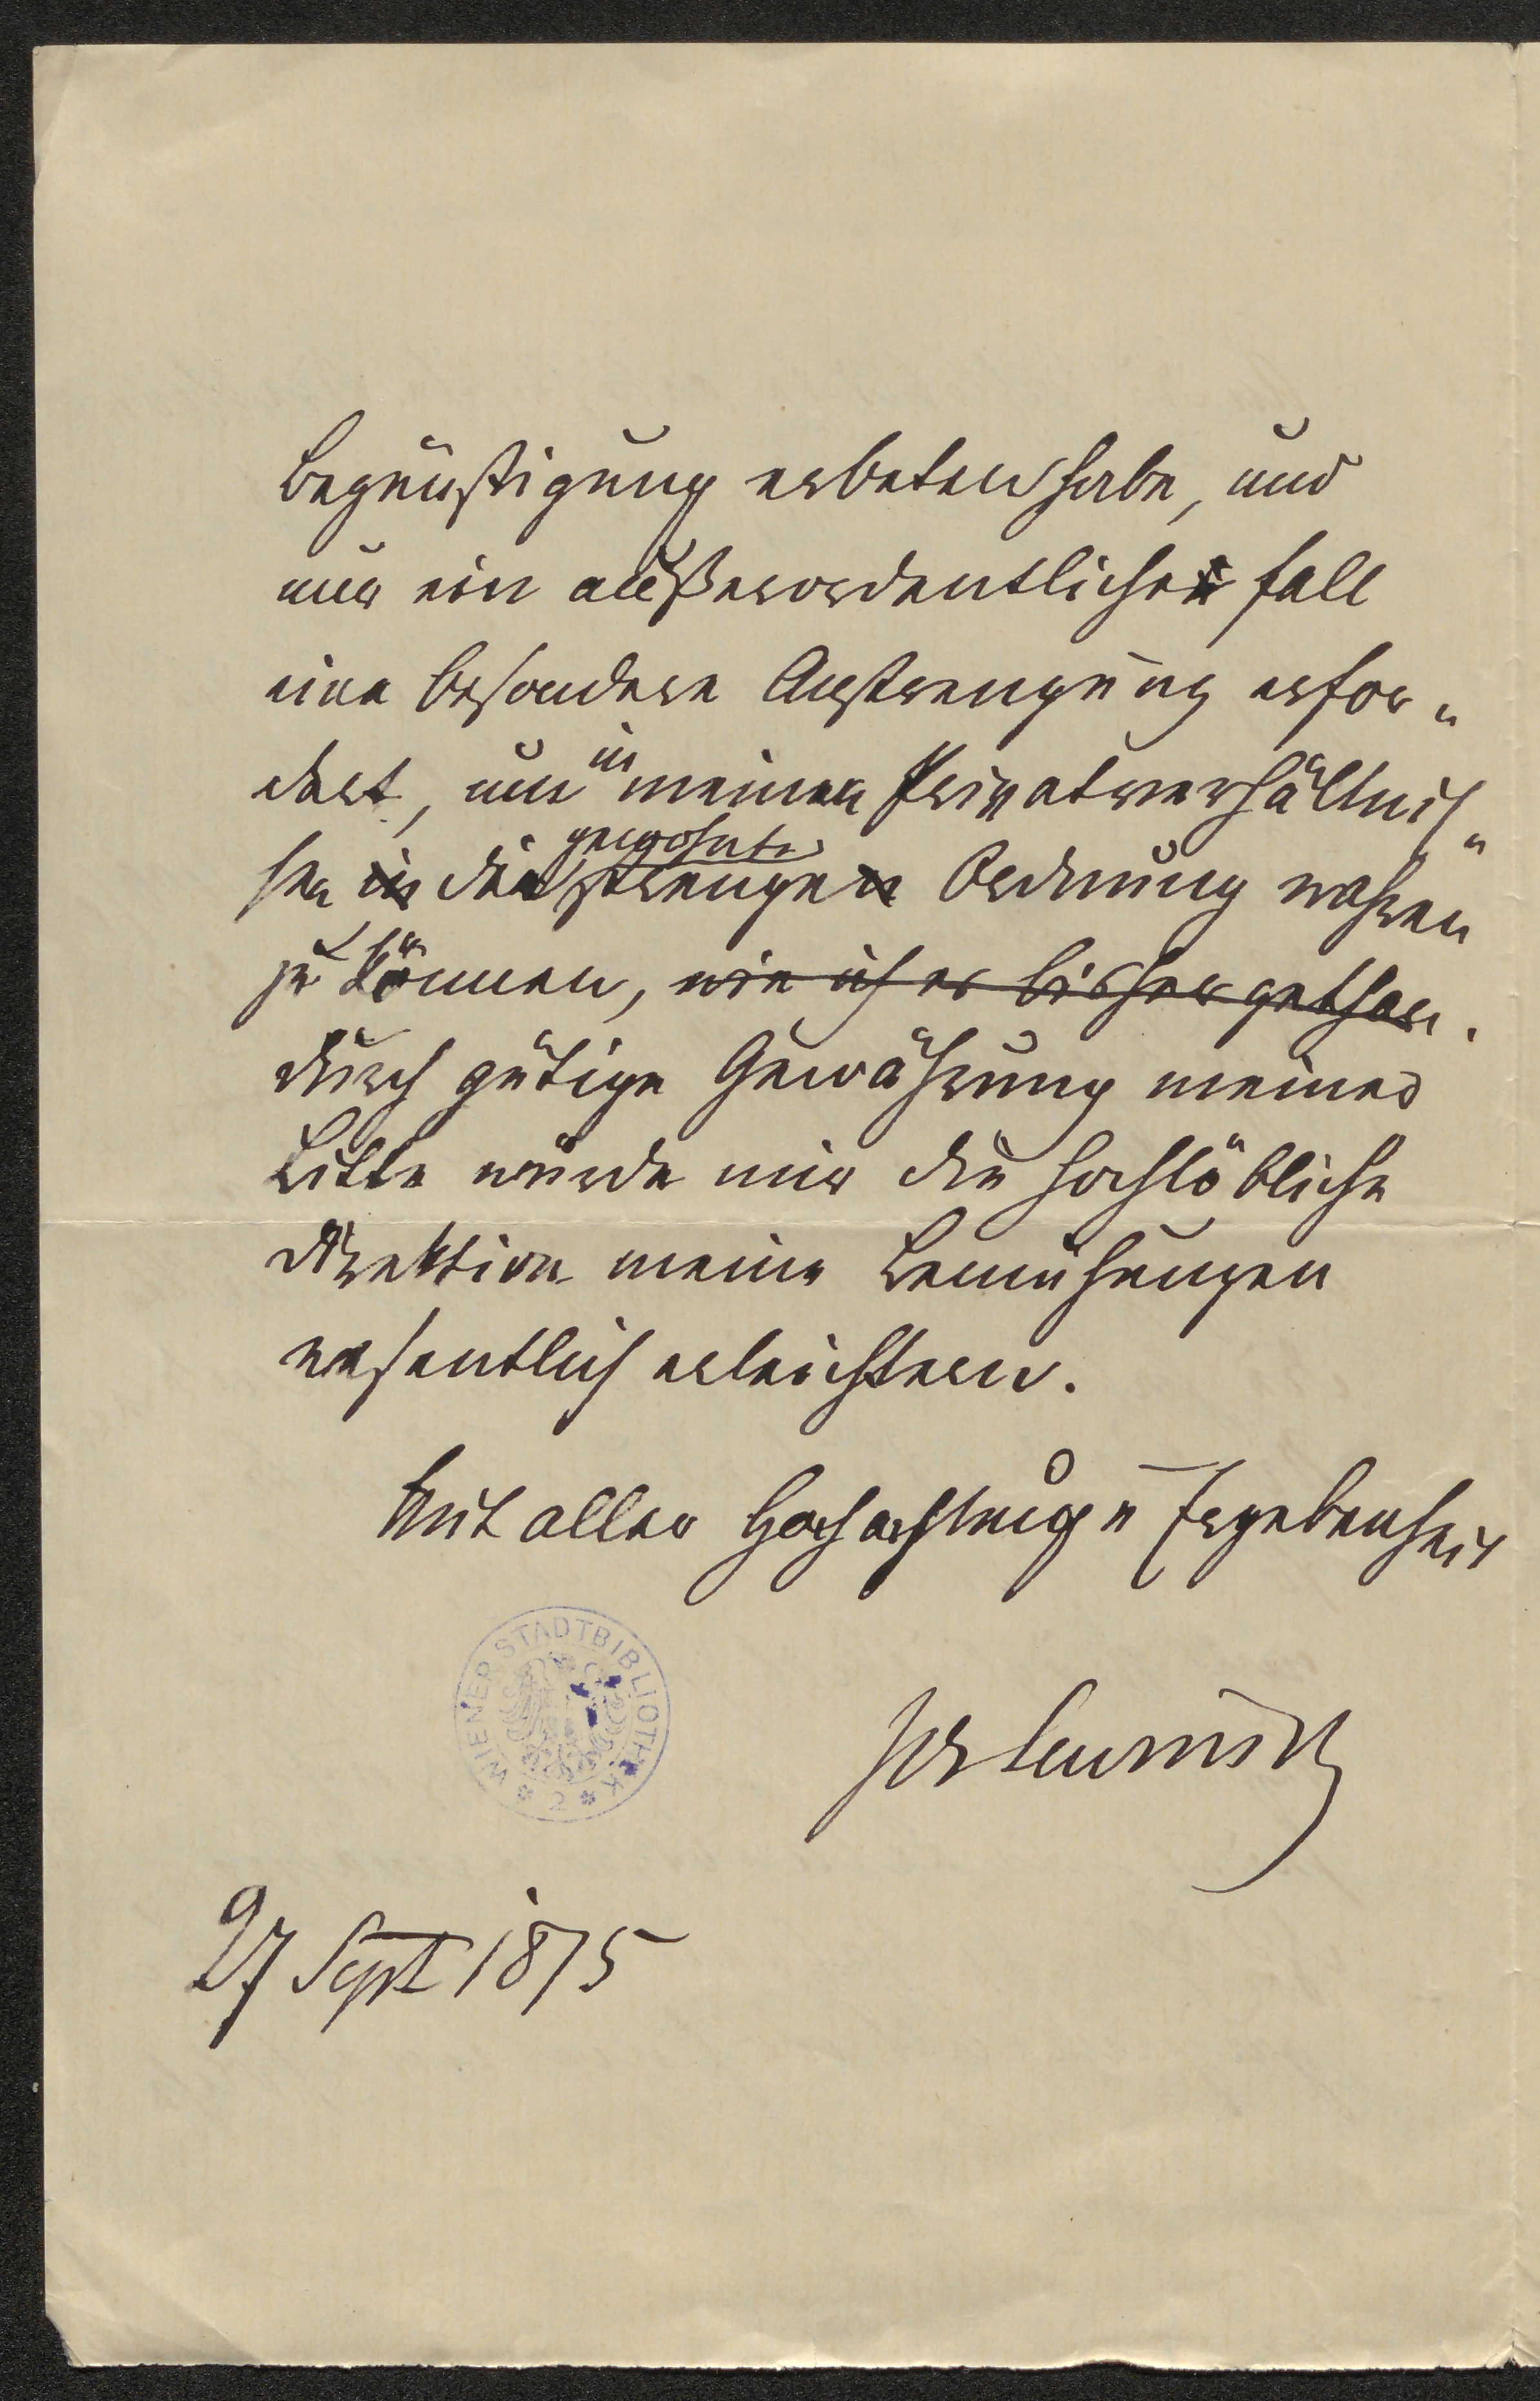 Begünstigung erbeten habe, und
nur ein außerordentlicher Fall
eine besondere Anstrengung erfor„
dert, um in meinen Privatverhältnis„
sen in die gewohnte strengen Ordnung wahren
zu können, wie ich es bisher gethan.
Durch gütige Gewährung meiner
Bitte würde mir die hochlöbliche
Direktion meine Bemühungen
wesentlich erleichtern.
Mit aller Hochachtung u Ergebenheit
WIENER STADTBIBLIOTHEK
2
27 Sept 1875